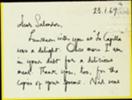 23.1.69
dear Salvador,
Luncheon with you at La Capilla
was a delight. Once more I am
in your debt for a delicious
meal. Thank you, too, for the
copies of your poems. Not one